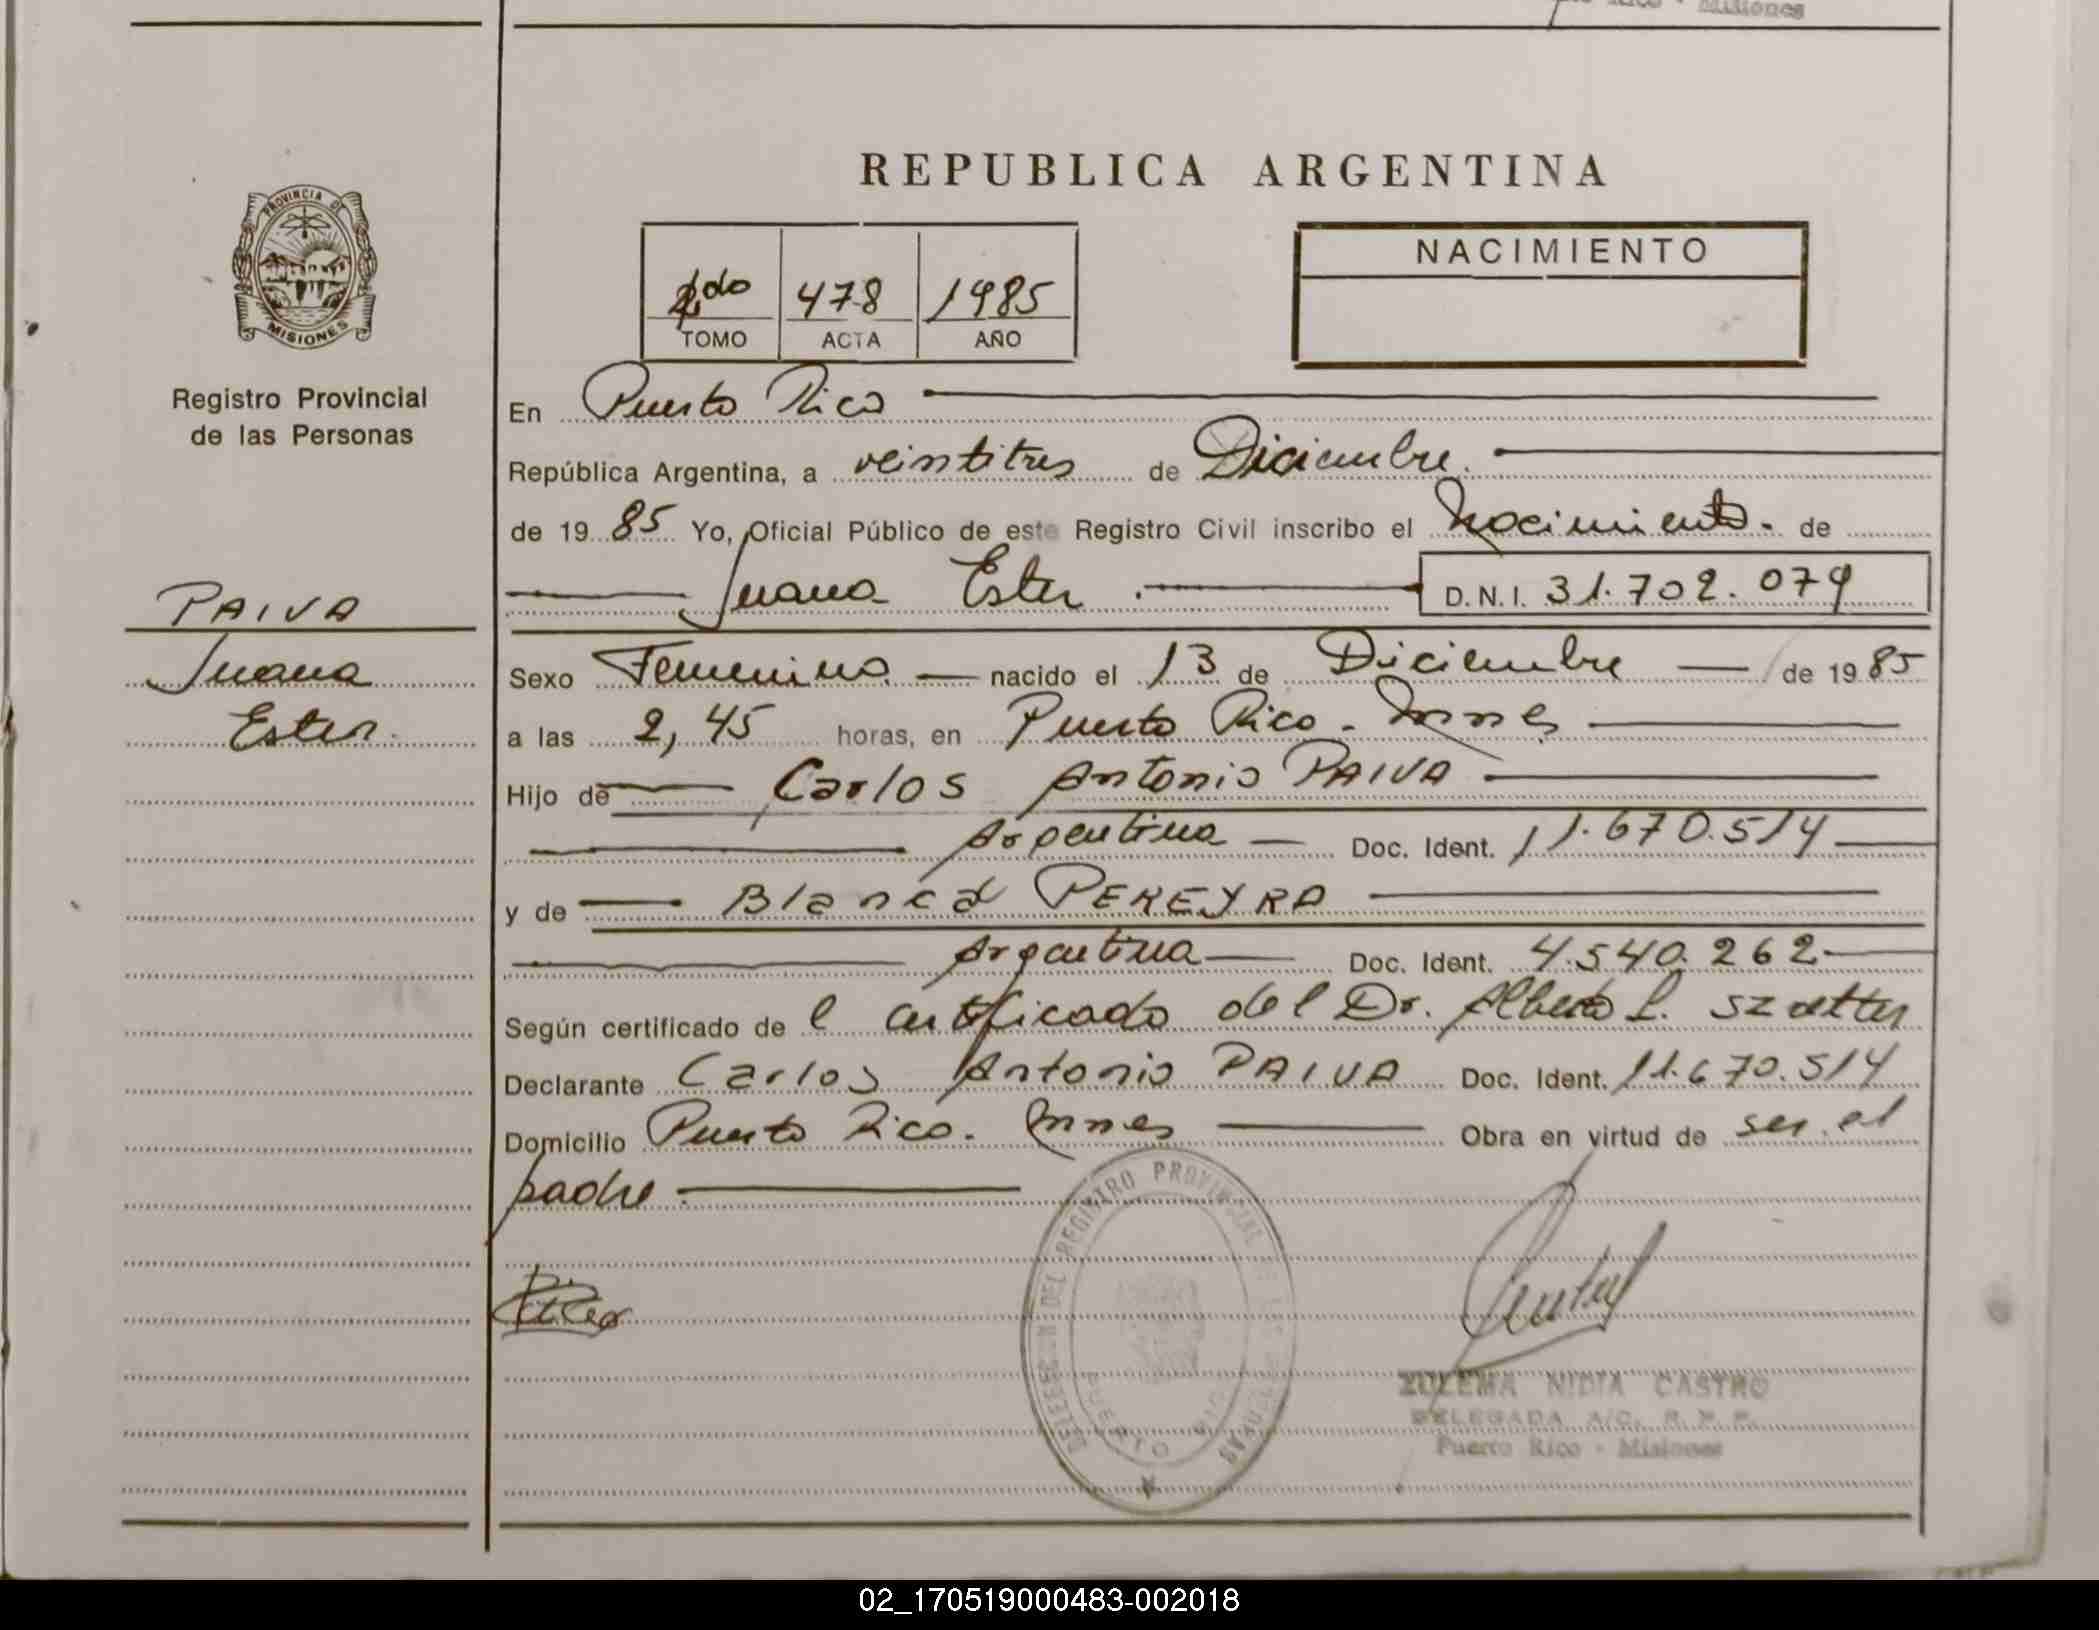 Rico - Misiones
PROVINCIA DE
MISIONES
Registro Provincial
de las Personas
PAIVA
Juana
Ester.
REPUBLICA ARGENTINA
2do 478 1985
TOMO ACTA AÑO
NACIMIENTO
En Puerto Rico
República Argentina, a veintitres de Diciembre.
de 19 85 Yo, Oficial Público de este Registro Civil inscribo el Nacimiento. de
Juana Ester. D.N.I. 31.702.079
Sexo Femenino nacido el 13 de Diciembre de 19 85
a las 2,45 horas, en Puerto Rico - Mnes
Hijo de Carlos Antonio PAIVA
Argentina Doc. Ident. 11.670.514
y de Blanca PEREYRA
Argentina Doc. Ident. 4.540.262
Según certificado de l certificado del Dr. Alberto L.
Declarante Carlos Antonio PAIVA Doc. Ident. 11.670.514
Domicilio Puerto Rico. Mnes Obra en virtud de ser el
padre.
DEL REGISTRO PROVINCIAL DE LAS PERSONAS
PUERTO RICO
ZULEMA NIDIA CASTRO
DELEGADA A/C. R. P. P.
Puerto Rico - Misiones
02_170519000483-002018